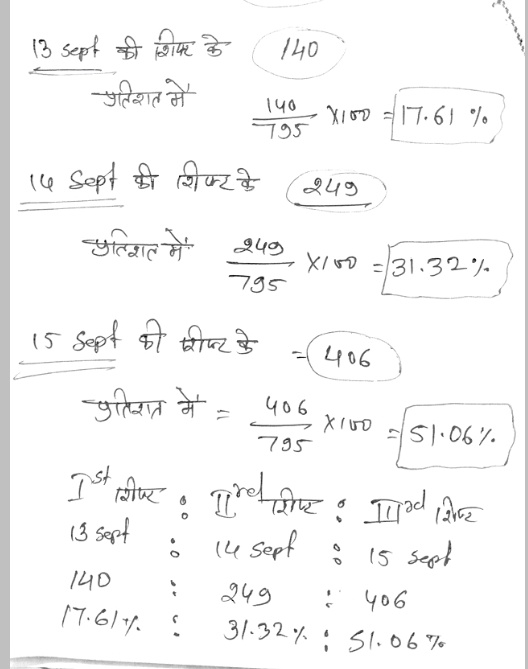 13 Sept की शिफ्ट के 140
प्रतिशत में 140/795 X100 = 17.61 %
14 Sept की शिफ्ट के 249
प्रतिशत में 249/795 X100 = 31.32%
15 Sept की शिफ्ट के = 406
प्रतिशत में = 406/795 X100 = 51.06%
Ist शिफ्ट : IIrd शिफ्ट : IIIrd शिफ्ट
13 Sept : 14 Sept : 15 Sept
140 : 249 : 406
17.61% : 31.32% : 51.06%